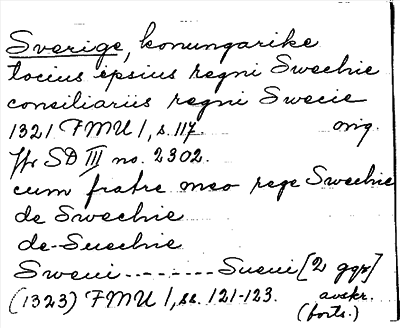 Sverige, konungarike
tocius ipsius regni Swechie
consiliariis regni Swecie
1321 FMU I, s. 117. orig.
Jfr SD III no. 2302.
cum fratre meo rege Swechie
de Swechie
de Suechie
Sweui--------Sueui [2 ggr]
(1323) FMU I, ss. 121-123. avskr.
(forts.)